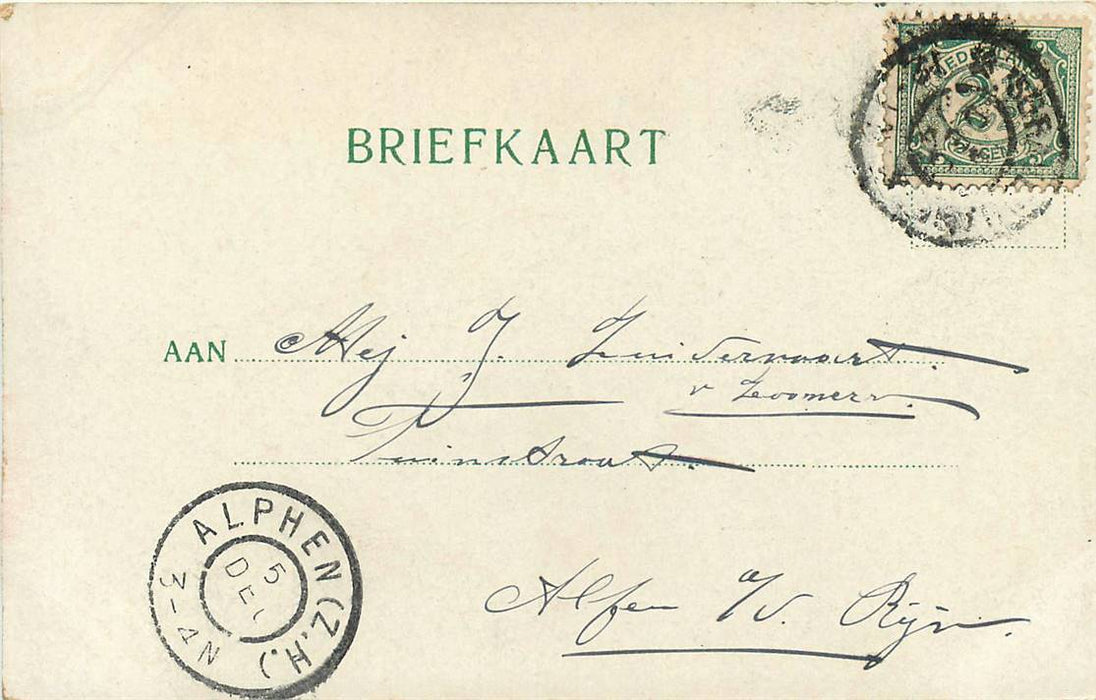 BRIEFKAART
AAN Mej J. Zuidervaart
v Zoomeren.
Tuinstraat.
ALPHEN (Z.H.)
5 DEC
3-4N
Alfen a/d. Rijn.